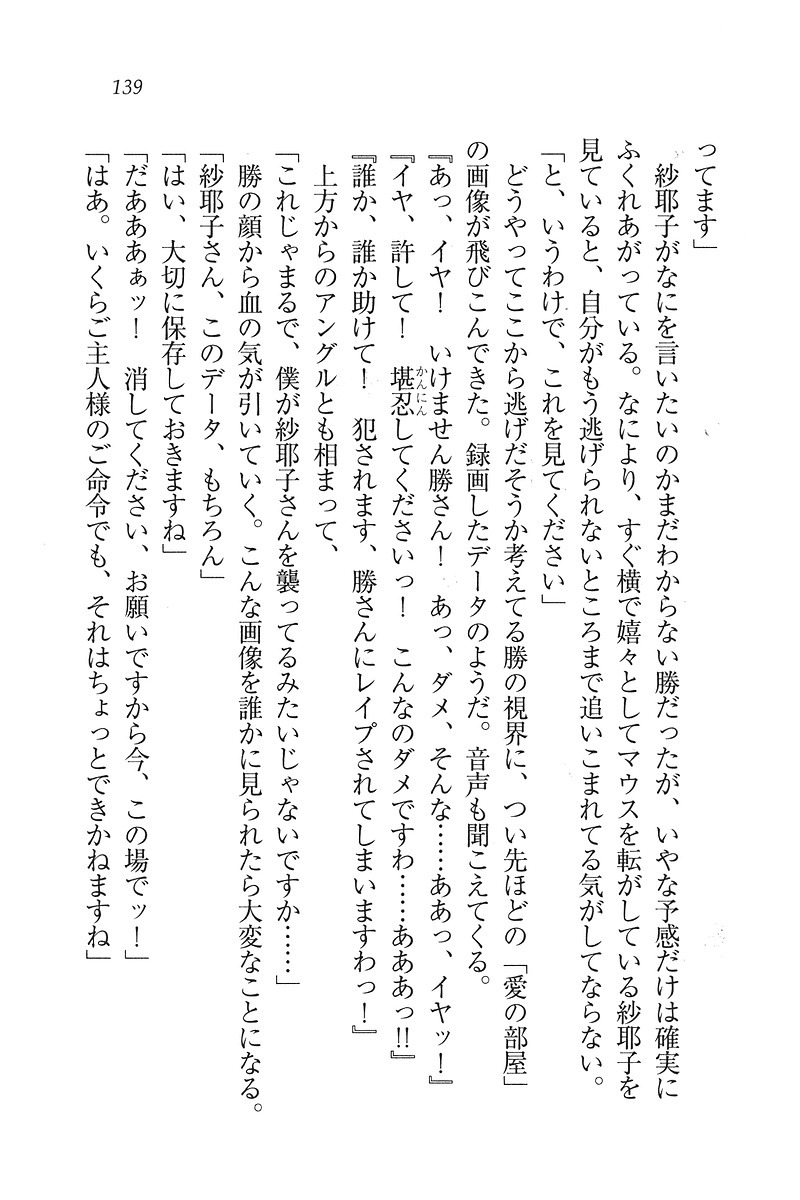 139
ってます」
　紗耶子がなにを言いたいのかまだわからない勝だったが、いやな予感だけは確実に
ふくれあがっている。なにより、すぐ横で嬉々としてマウスを転がしている紗耶子を
見ていると、自分がもう逃げられないところまで追いこまれてる気がしてならない。
「と、いうわけで、これを見てください」
　どうやってここから逃げだそうか考えてる勝の視界に、つい先ほどの「愛の部屋」
の画像が飛びこんできた。録画したデータのようだ。音声も聞こえてくる。
『あっ、イヤ！　いけません勝さん！　あっ、ダメ、そんな……ああっ、イヤッ！』
『イヤ、許して！　堪忍してくださいっ！　こんなのダメですわ……あああっ!!』
『誰か、誰か助けて！　犯されます、勝さんにレイプされてしまいますわっ！』
　上方からのアングルとも相まって、
「これじゃまるで、僕が紗耶子さんを襲ってるみたいじゃないですか……」
　勝の顔から血の気が引いていく。こんな画像を誰かに見られたら大変なことになる。
「紗耶子さん、このデータ、もちろん」
「はい、大切に保存しておきますね」
「だあああぁッ！　消してください、お願いですから今、この場でッ！」
「はあ。いくらご主人様のご命令でも、それはちょっとできかねますね」